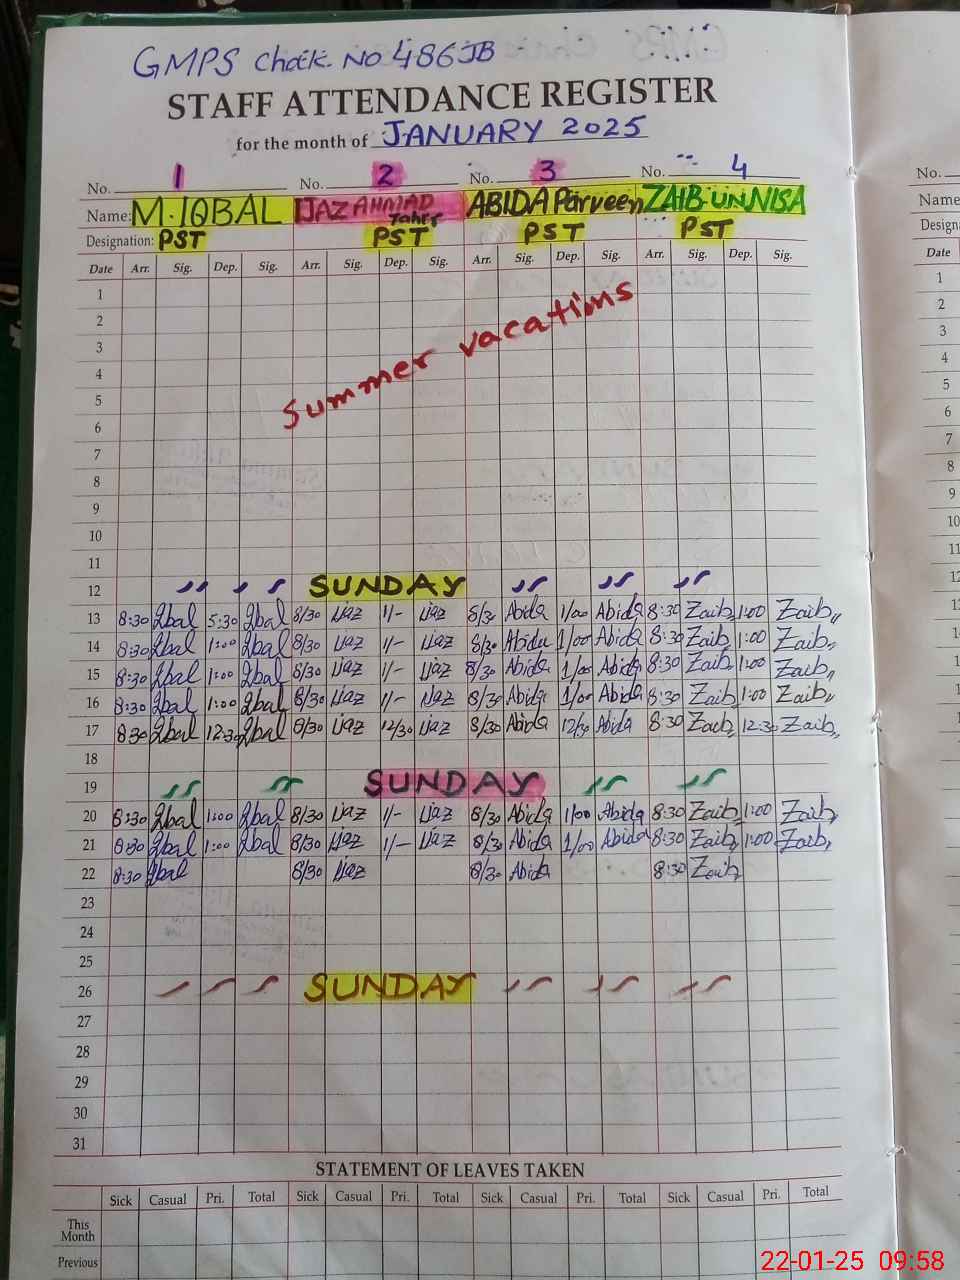 GMPS Chak. No 486JB
STAFF ATTENDANCE REGISTER
for the month of JANUARY 2025
No. 1 No. 2 No. 3 No. 4 No.
Name: M.IQBAL IJAZ AHMAD Tahir ABIDA Parveen ZAIB-UN-NISA Name
Designation: PST PST PST PST
Date Arr. Sig. Dep. Sig. Arr. Sig. Dep. Sig. Arr. Sig. Dep. Sig. Arr. Sig. Dep. Sig. Date
1 1
2 2
Summer vacations
3 3
4 4
5 5
6 6
7 7
8 8
9 9
10 10
11 11
12 SUNDAY 12
13 8:30 Iqbal 5:30 Iqbal 8/30 Ijaz 1/- Ijaz 8/30 Abida 1/00 Abida 8:30 Zaib 1:00 Zaib 13
14 8:30 Iqbal 1:00 Iqbal 8/30 Ijaz 1/- Ijaz 8/30 Abida 1/00 Abida 8:30 Zaib 1:00 Zaib 14
15 8:30 Iqbal 1:00 Iqbal 8/30 Ijaz 1/- Ijaz 8/30 Abida 1/00 Abida 8:30 Zaib 1:00 Zaib 15
16 8:30 Iqbal 1:00 Iqbal 8/30 Ijaz 1/- Ijaz 8/30 Abida 1/00 Abida 8:30 Zaib 1:00 Zaib 16
17 8:30 Iqbal 12:30 Iqbal 8/30 Ijaz 12/30 Ijaz 8/30 Abida 12/30 Abida 8:30 Zaib 12:30 Zaib 17
18 18
19 SUNDAY 19
20 8:30 Iqbal 1:00 Iqbal 8/30 Ijaz 1/- Ijaz 8/30 Abida 1/00 Abida 8:30 Zaib 1:00 Zaib 20
21 8:30 Iqbal 1:00 Iqbal 8/30 Ijaz 1/- Ijaz 8/30 Abida 1/00 Abida 8:30 Zaib 1:00 Zaib 21
22 8:30 Iqbal 8/30 Ijaz 8/30 Abida 8:30 Zaib 22
23 23
24 24
25 25
26 SUNDAY 26
27 27
28 28
29 29
30 30
31 31
STATEMENT OF LEAVES TAKEN
Sick Casual Pri. Total Sick Casual Pri. Total Sick Casual Pri. Total Sick Casual Pri. Total
This
Month
Previous
22-01-25 09:58